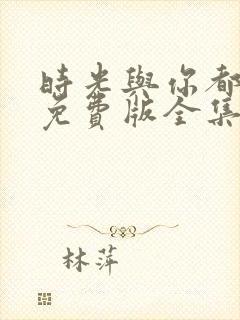 時光與你都
免費版全集
林萍